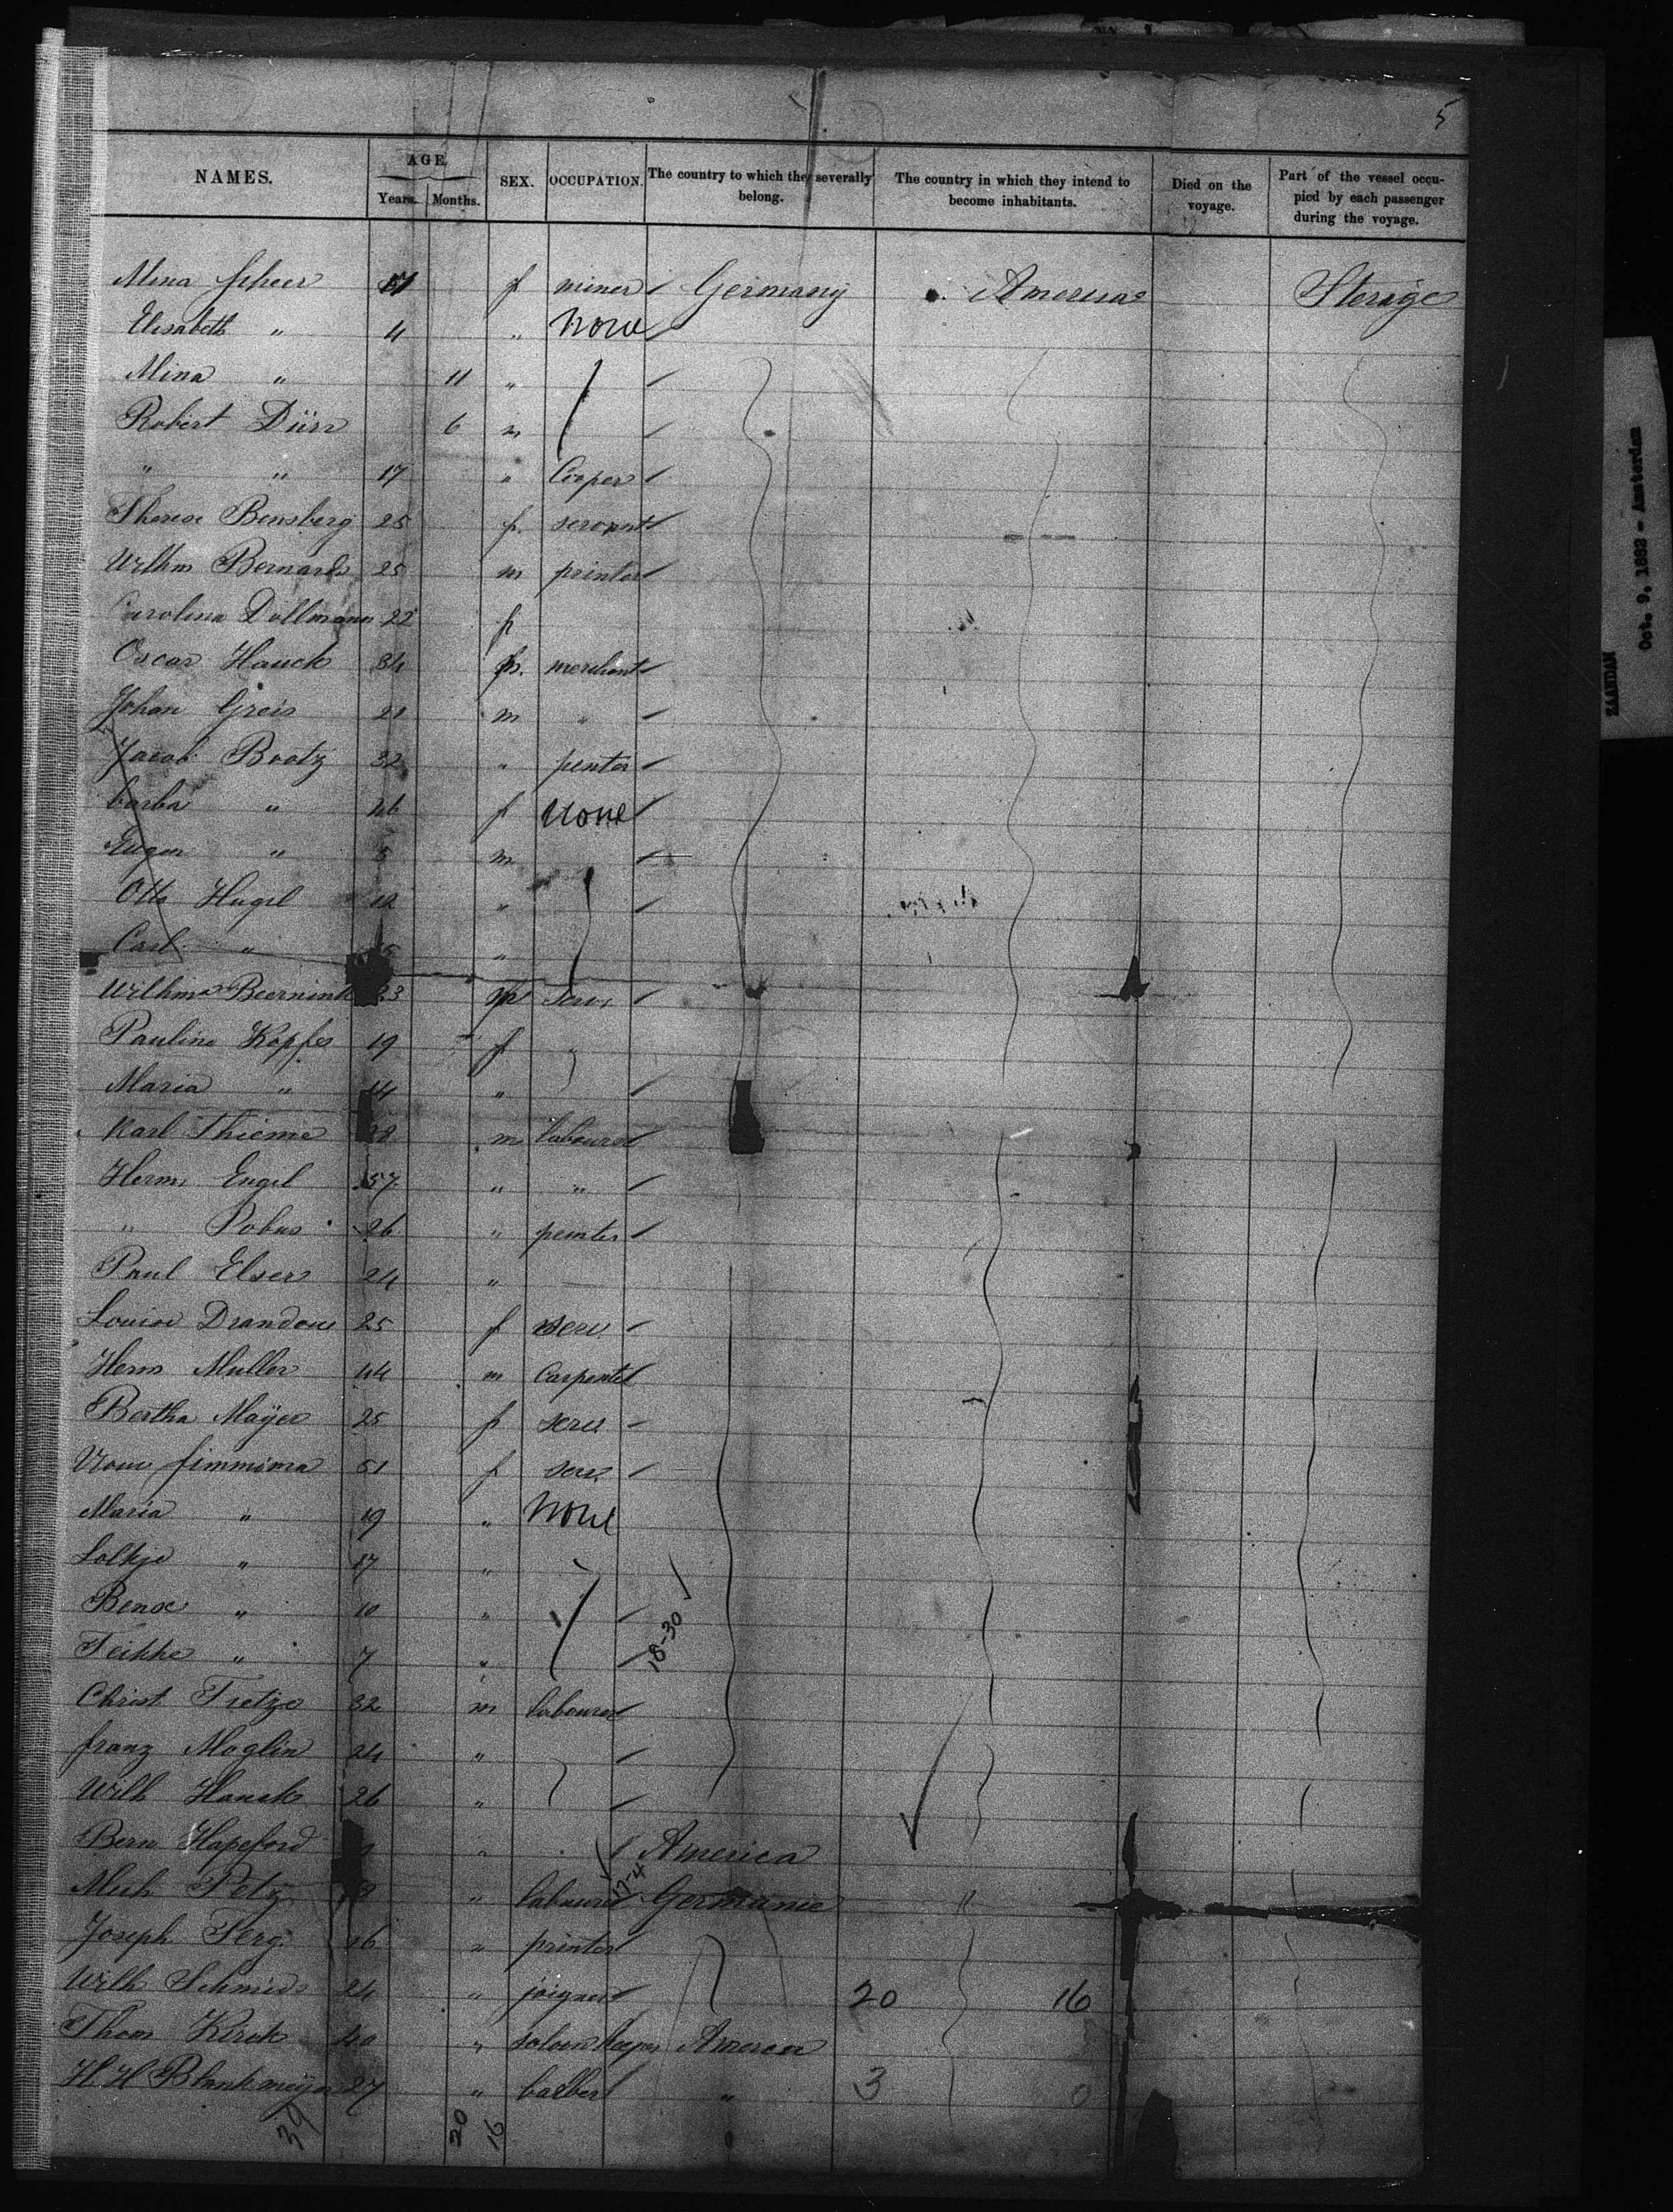 5
NAMES. AGE. SEX. OCCUPATION. The country to which they severally belong. The country in which they intend to become inhabitants. Died on the voyage. Part of the vessel occupied by each passenger during the voyage.
Years. Months.
Mina Scheer f miner Germany America Sterage
Elisabeth " 4 " None
Mina " 11 "
Robert Dürr 6 m
" " 17 " Cooper
Therese Bensberg 25 f. servant
Wilhm Bernards 25 m printer
Carolina Dollmann 22 f
Oscar Hauck 34 m. merchant
Johan Greis 21 m "
Jacob Bootz 32 " penter
Barba " 26 f None
Eugen " 5 m
Otto Hugel 12 "
Carl "
Wilhma Beernink 23 serv
Pauline Köpfer 19 f "
Maria " 14 "
Karl Thieme 28 m labourer
Herm Engel 57 " "
" Pobus 26 " peinter
Paul Elser 24 "
Louise Drandow 25 f serv
Herm Muller 44 m Carpenter
Bertha Mayer 25 f serv
51 f serv
Maria " 19 " None
17 "
10 "
Teikke " 7 "
18-30
Christ Tietze 32 m labourer
Franz Moglin 24 "
Wilh Hanek 26 "
Bern Hapeford " America
Mich Petz " labourer Germanie
17-4
Joseph Ferg. 26 " printer
Wilh Schmids 24 " joigner 20 16
Thom Kirck 40 " saloon keeper America
H H Blankmeijer 27 " barber " 3 0
39 20 16
ZAANDAM
Oct. 9, 1882 - Amsterdam